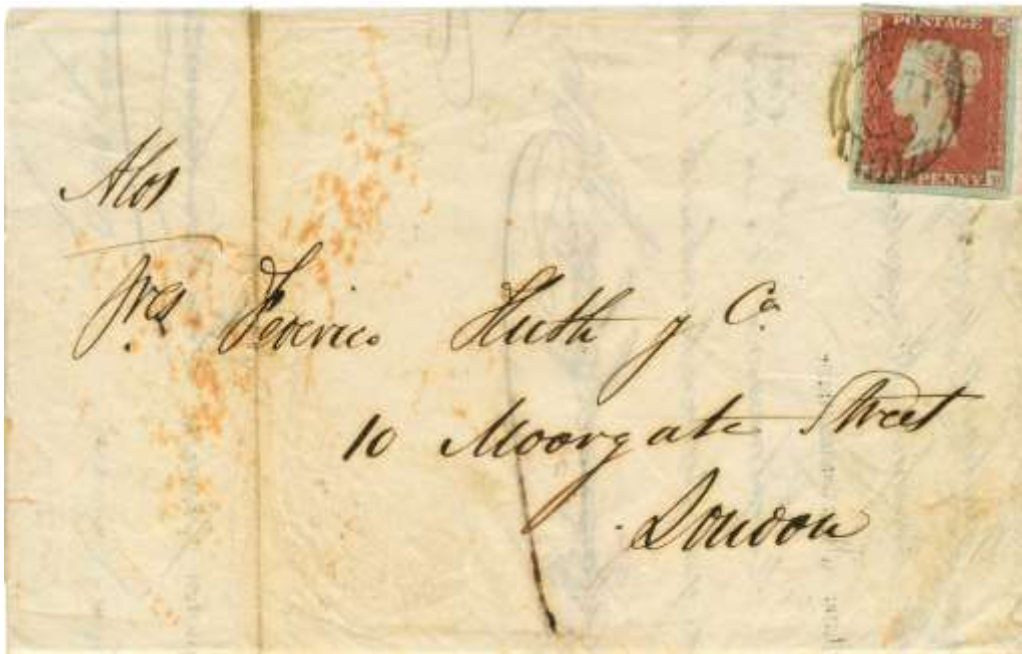 POSTAGE
PENNY
A los
Sres Federico Huth y Ca
10 Moorgate Street
London